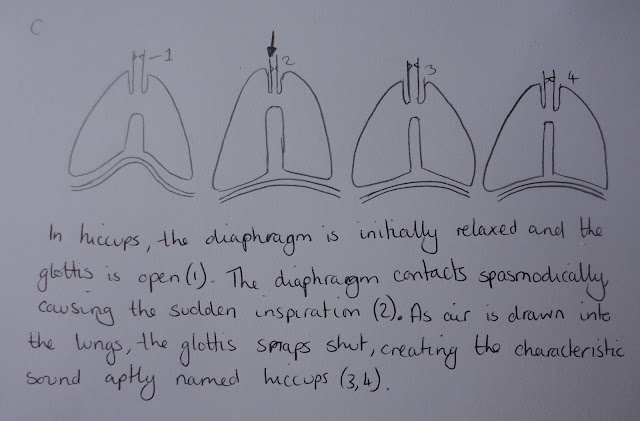 C
1 2 3 4
In hiccups, the diaphragm is initially relaxed and the
glottis is open (1). The diaphragm contacts spasmodically
causing the sudden inspiration (2). As air is drawn into
the lungs, the glottis snaps shut, creating the characteristic
sound aptly named hiccups (3,4).